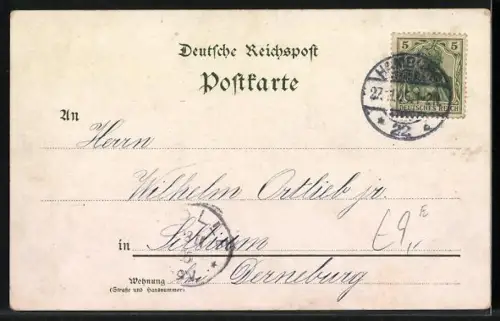 Deutsche Reichspost
Postkarte
5 5
DEUTSCHES REICH
An
Herrn
Wilhelm Ortlieb jr.
in
bei Derneburg
Wohnung
(Straße und Hausnummer)
22